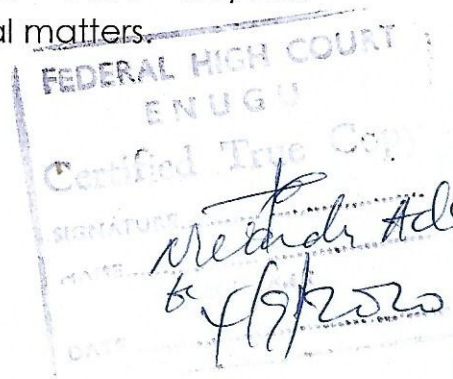 al matters.
FEDERAL HIGH COURT
ENUGU
Certified True Copy
SIGNATURE
NAME
4/9/2020
DATE